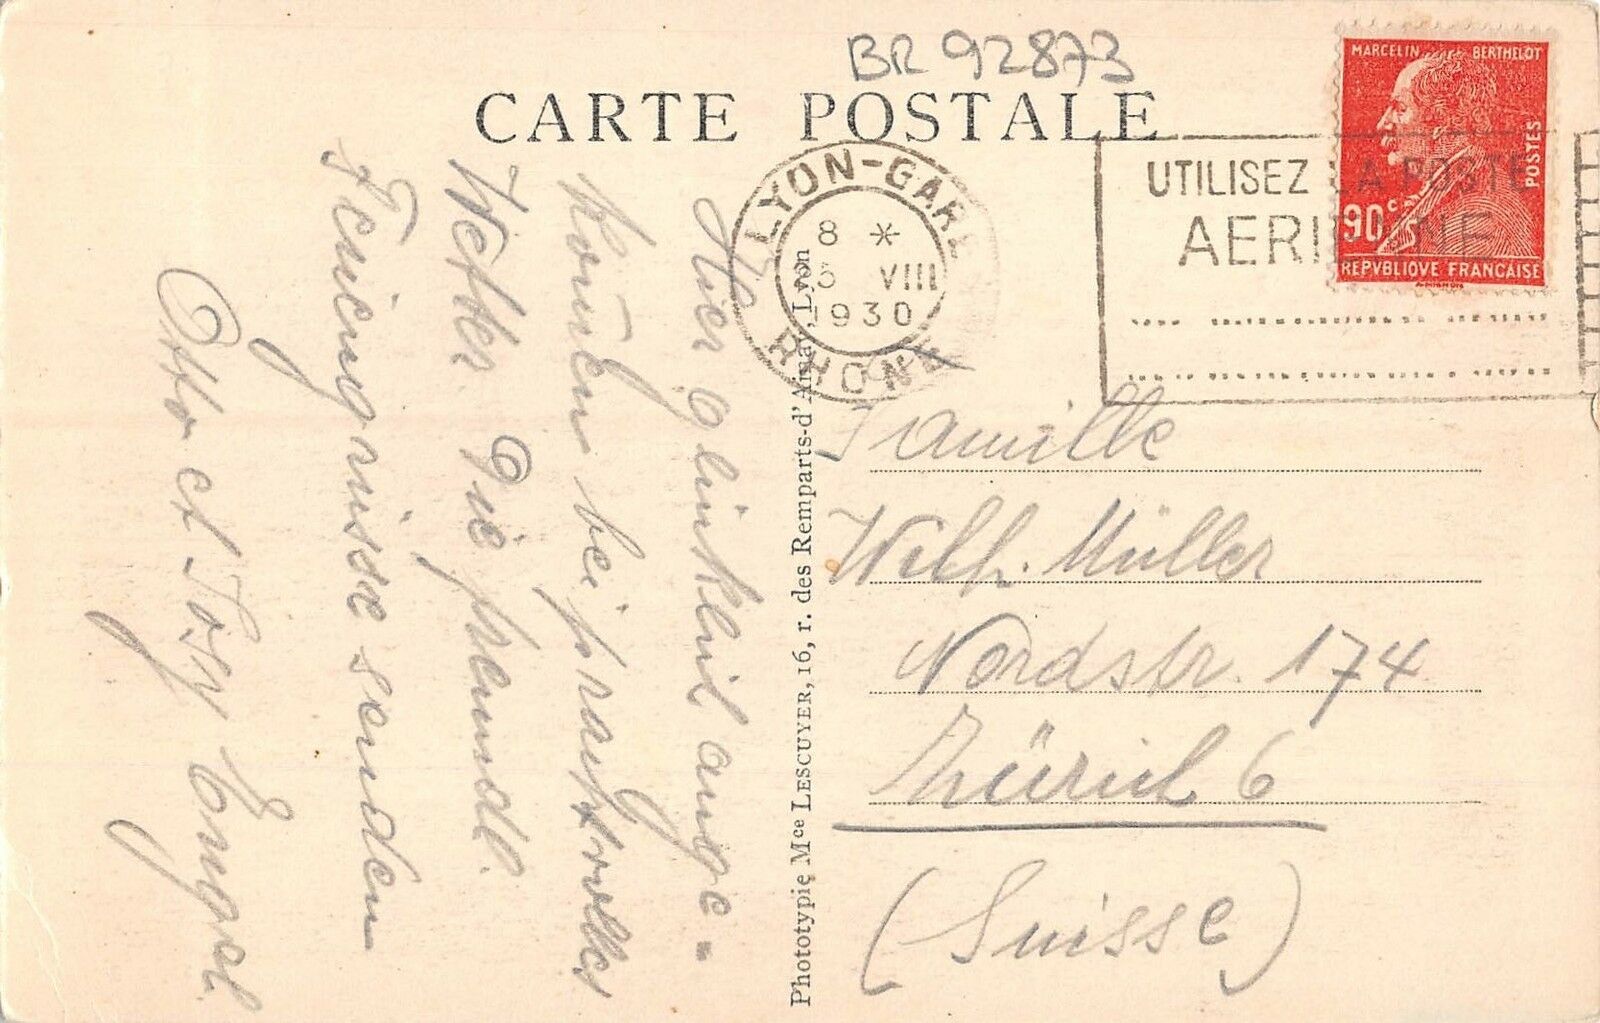 BR 92873
CARTE POSTALE
MARCELIN BERTHELOT
POSTES
90c
REPVBLIQVE FRANÇAISE
LYON-GARE
8 *
VIII
1930
RHONE
UTILISEZ LA POSTE
AERIENNE
Hier glinklich ange-
kom̄en bei prachtvollen
Wetter. Die freundl.
Feriengrüsse senden
Otto et Rosy Engel.
Phototypie Mce LESCUYER, 16, r. des Remparts-d'Ainay, Lyon
Familie
Wilh. Müller
Nordstr. 174
Zürich 6
(Suisse)